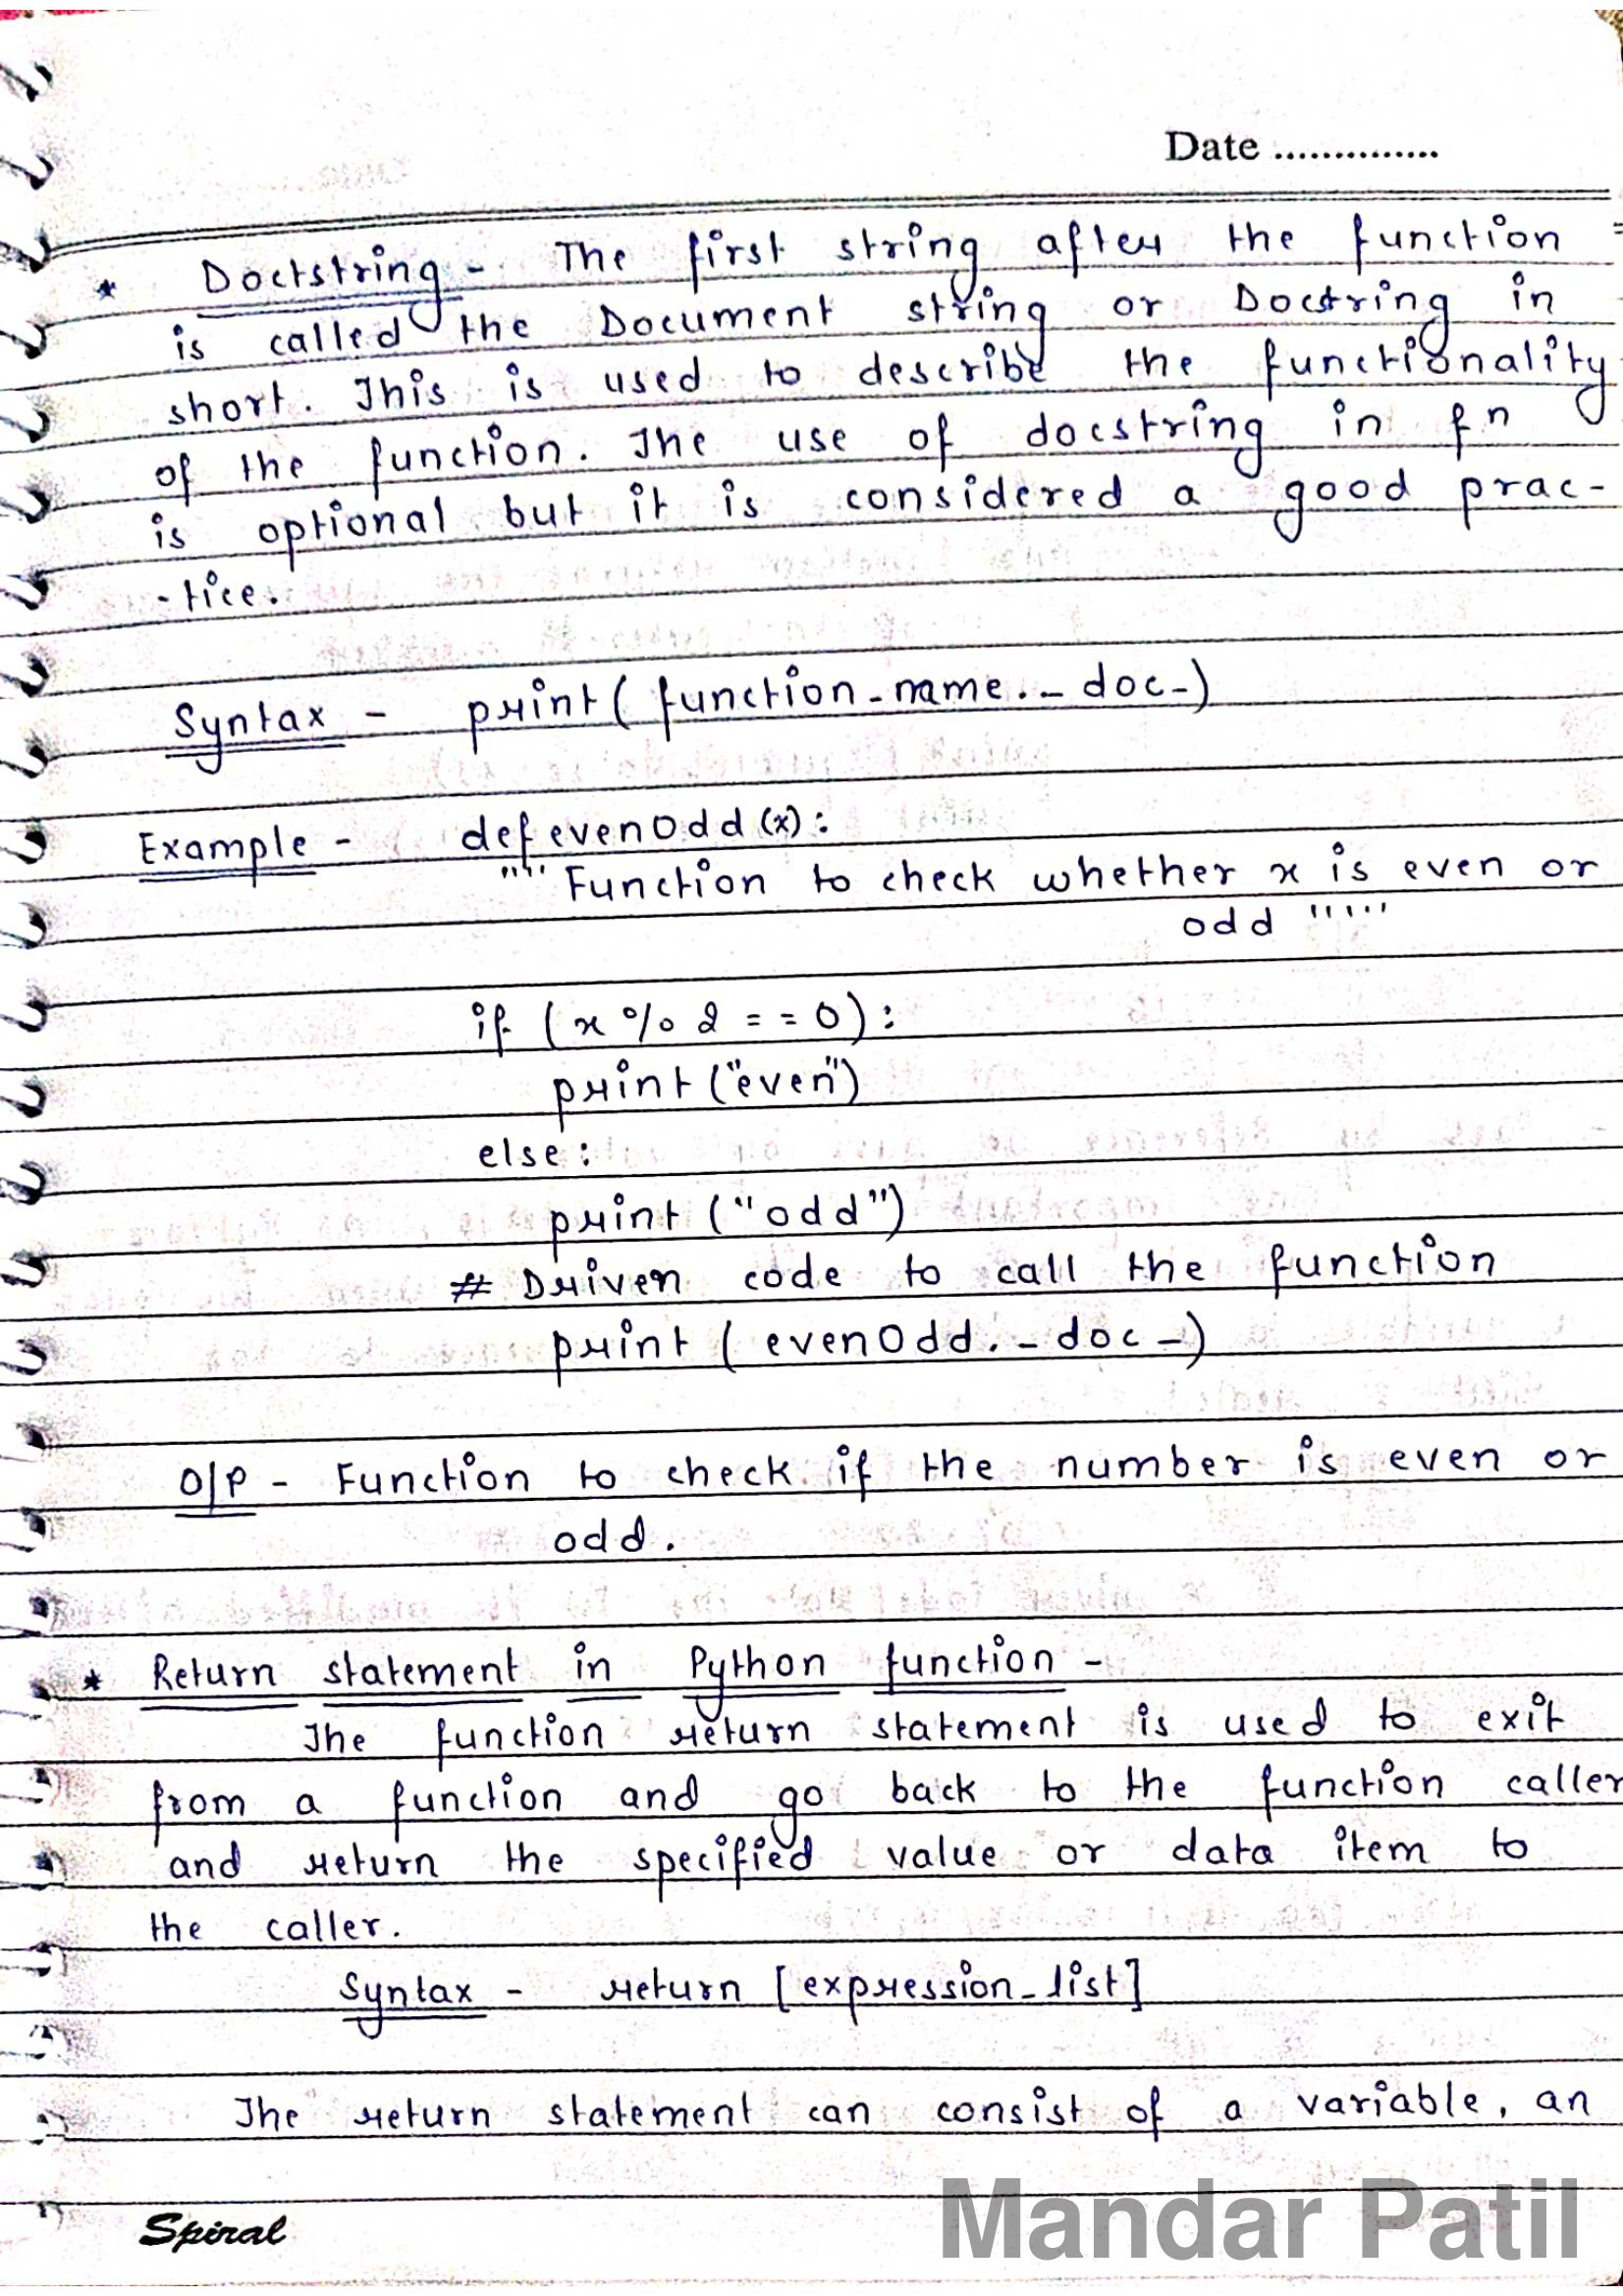 Date ...............
* Doctstring - The first string after the function
is called the Document string or Docstring in
short. This is used to describe the functionality
of the function. The use of docstring in fn
is optional but it is considered a good prac-
-tice.
Syntax - print( function_name._doc_)
Example - def evenOdd (x):
""" Function to check whether x is even or
odd """
if ( x % 2 == 0):
print ("even")
else :
print ("odd")
# Driven code to call the function
print ( evenOdd._doc_)
O/P - Function to check if the number is even or
odd.
* Return statement in Python function -
The function return statement is used to exit
from a function and go back to the function caller
and return the specified value or data item to
the caller.
Syntax - return [expression_list]
The return statement can consist of a variable, an
Spiral
Mandar Patil